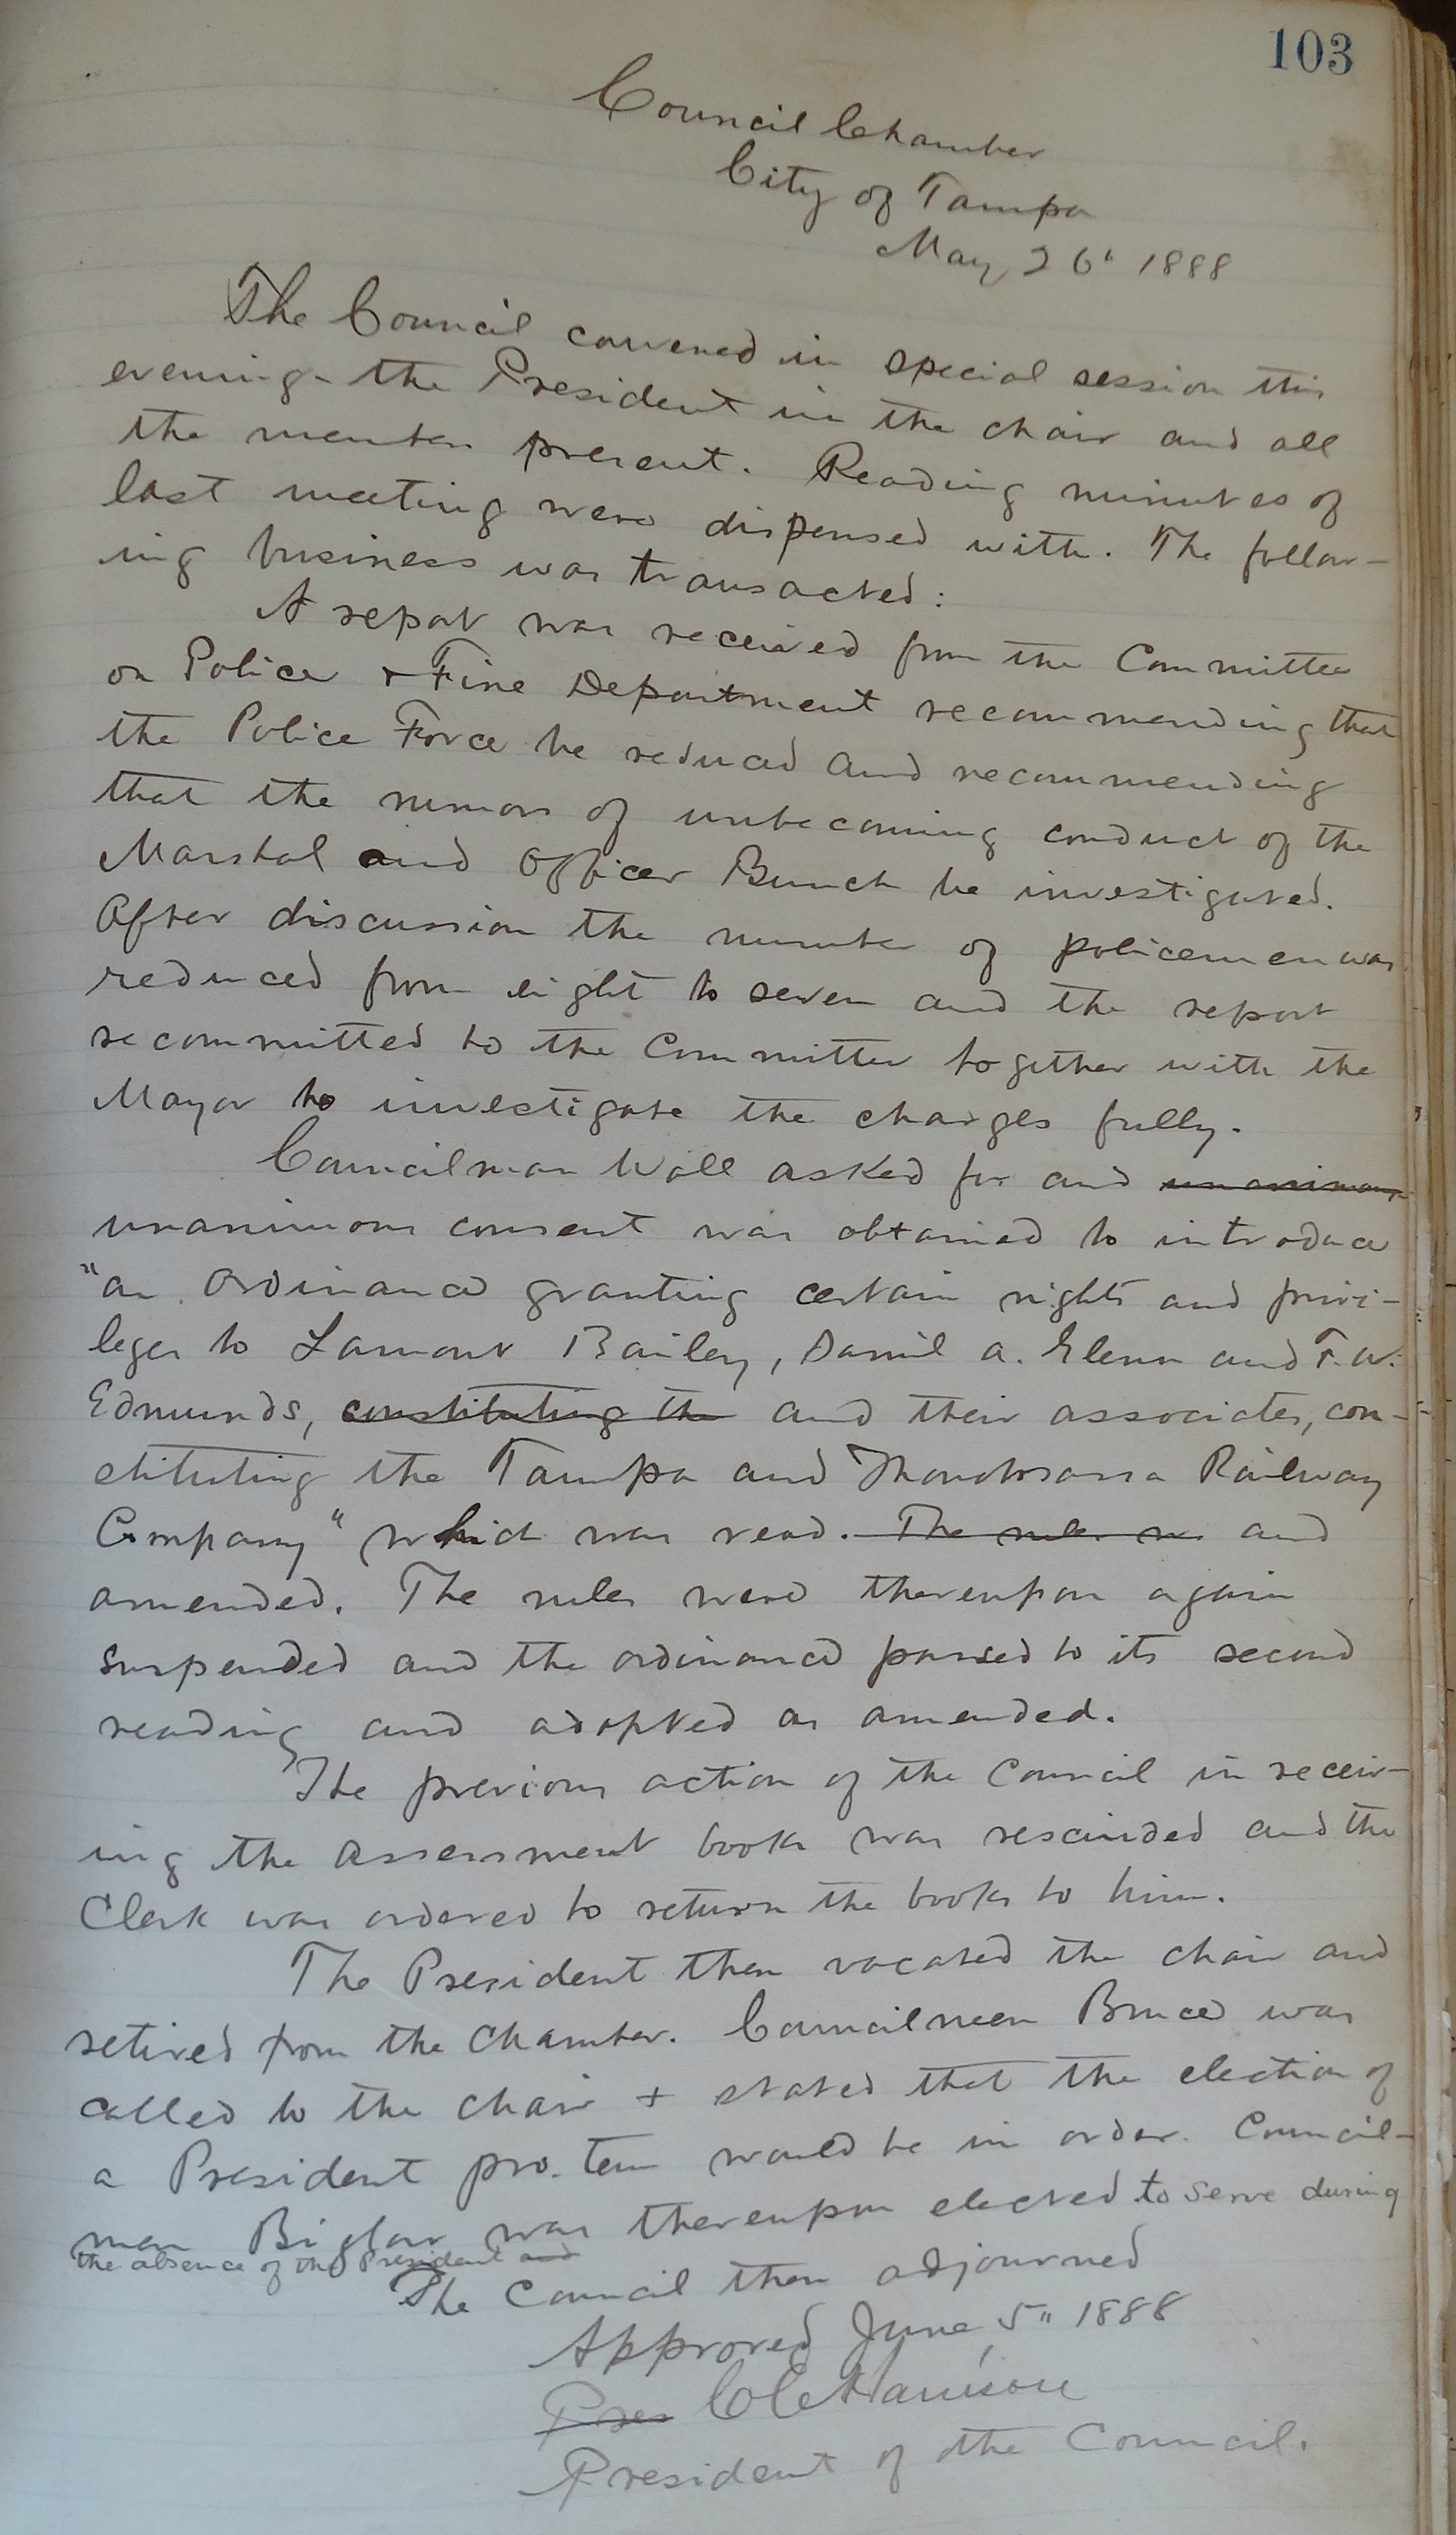 103
Council Chamber
City of Tampa
May 26" 1888
The Council convened in special session this
evening - the President in the chair and all
the members present. Reading minutes of
last meeting were dispensed with. The follow-
ing business was transacted:
A report was received from the Committee
on Police & Fire Department recommending that
the Police Force be reduced and recommending
that the rumors of unbecoming conduct of the
Marshal and Officer Bunch be investigated.
After discussion the number of policemen was
reduced from eight to seven and the report
recommitted to the Committee together with the
Mayor to investigate the charges fully.
Councilman Wall asked for and unanimous
unanimous consent was obtained to introduce
"an Ordinance granting certain rights and privi-
leges to Lamont Bailey, Danil A. Glenn and F. W.
Edmunds, constituting the and their associates, con-
stituting the Tampa and Thonotosassa Railway
Company" which was read. The rules we and
amended. The rules were thereupon again
suspended and the ordinance passed to its second
reading and adopted as amended.
The previous action of the Council in receiv-
ing the assessment books was rescinded and the
Clerk was ordered to return the books to him.
The President then vacated the chair and
retired from the chamber. Councilmen Bruce was
called to the chair & stated that the election of
a President pro. tem would be in order. Council-
men Biglow was thereupon elected to serve during
the absence of the President and
The Council then adjourned
Approved June 5" 1888
Pres C C Harrison
President of the Council.